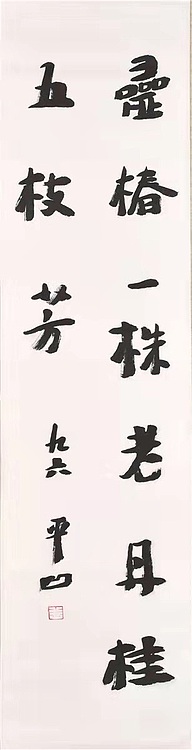 靈椿一株老丹桂
五枝芳
九六 平凹